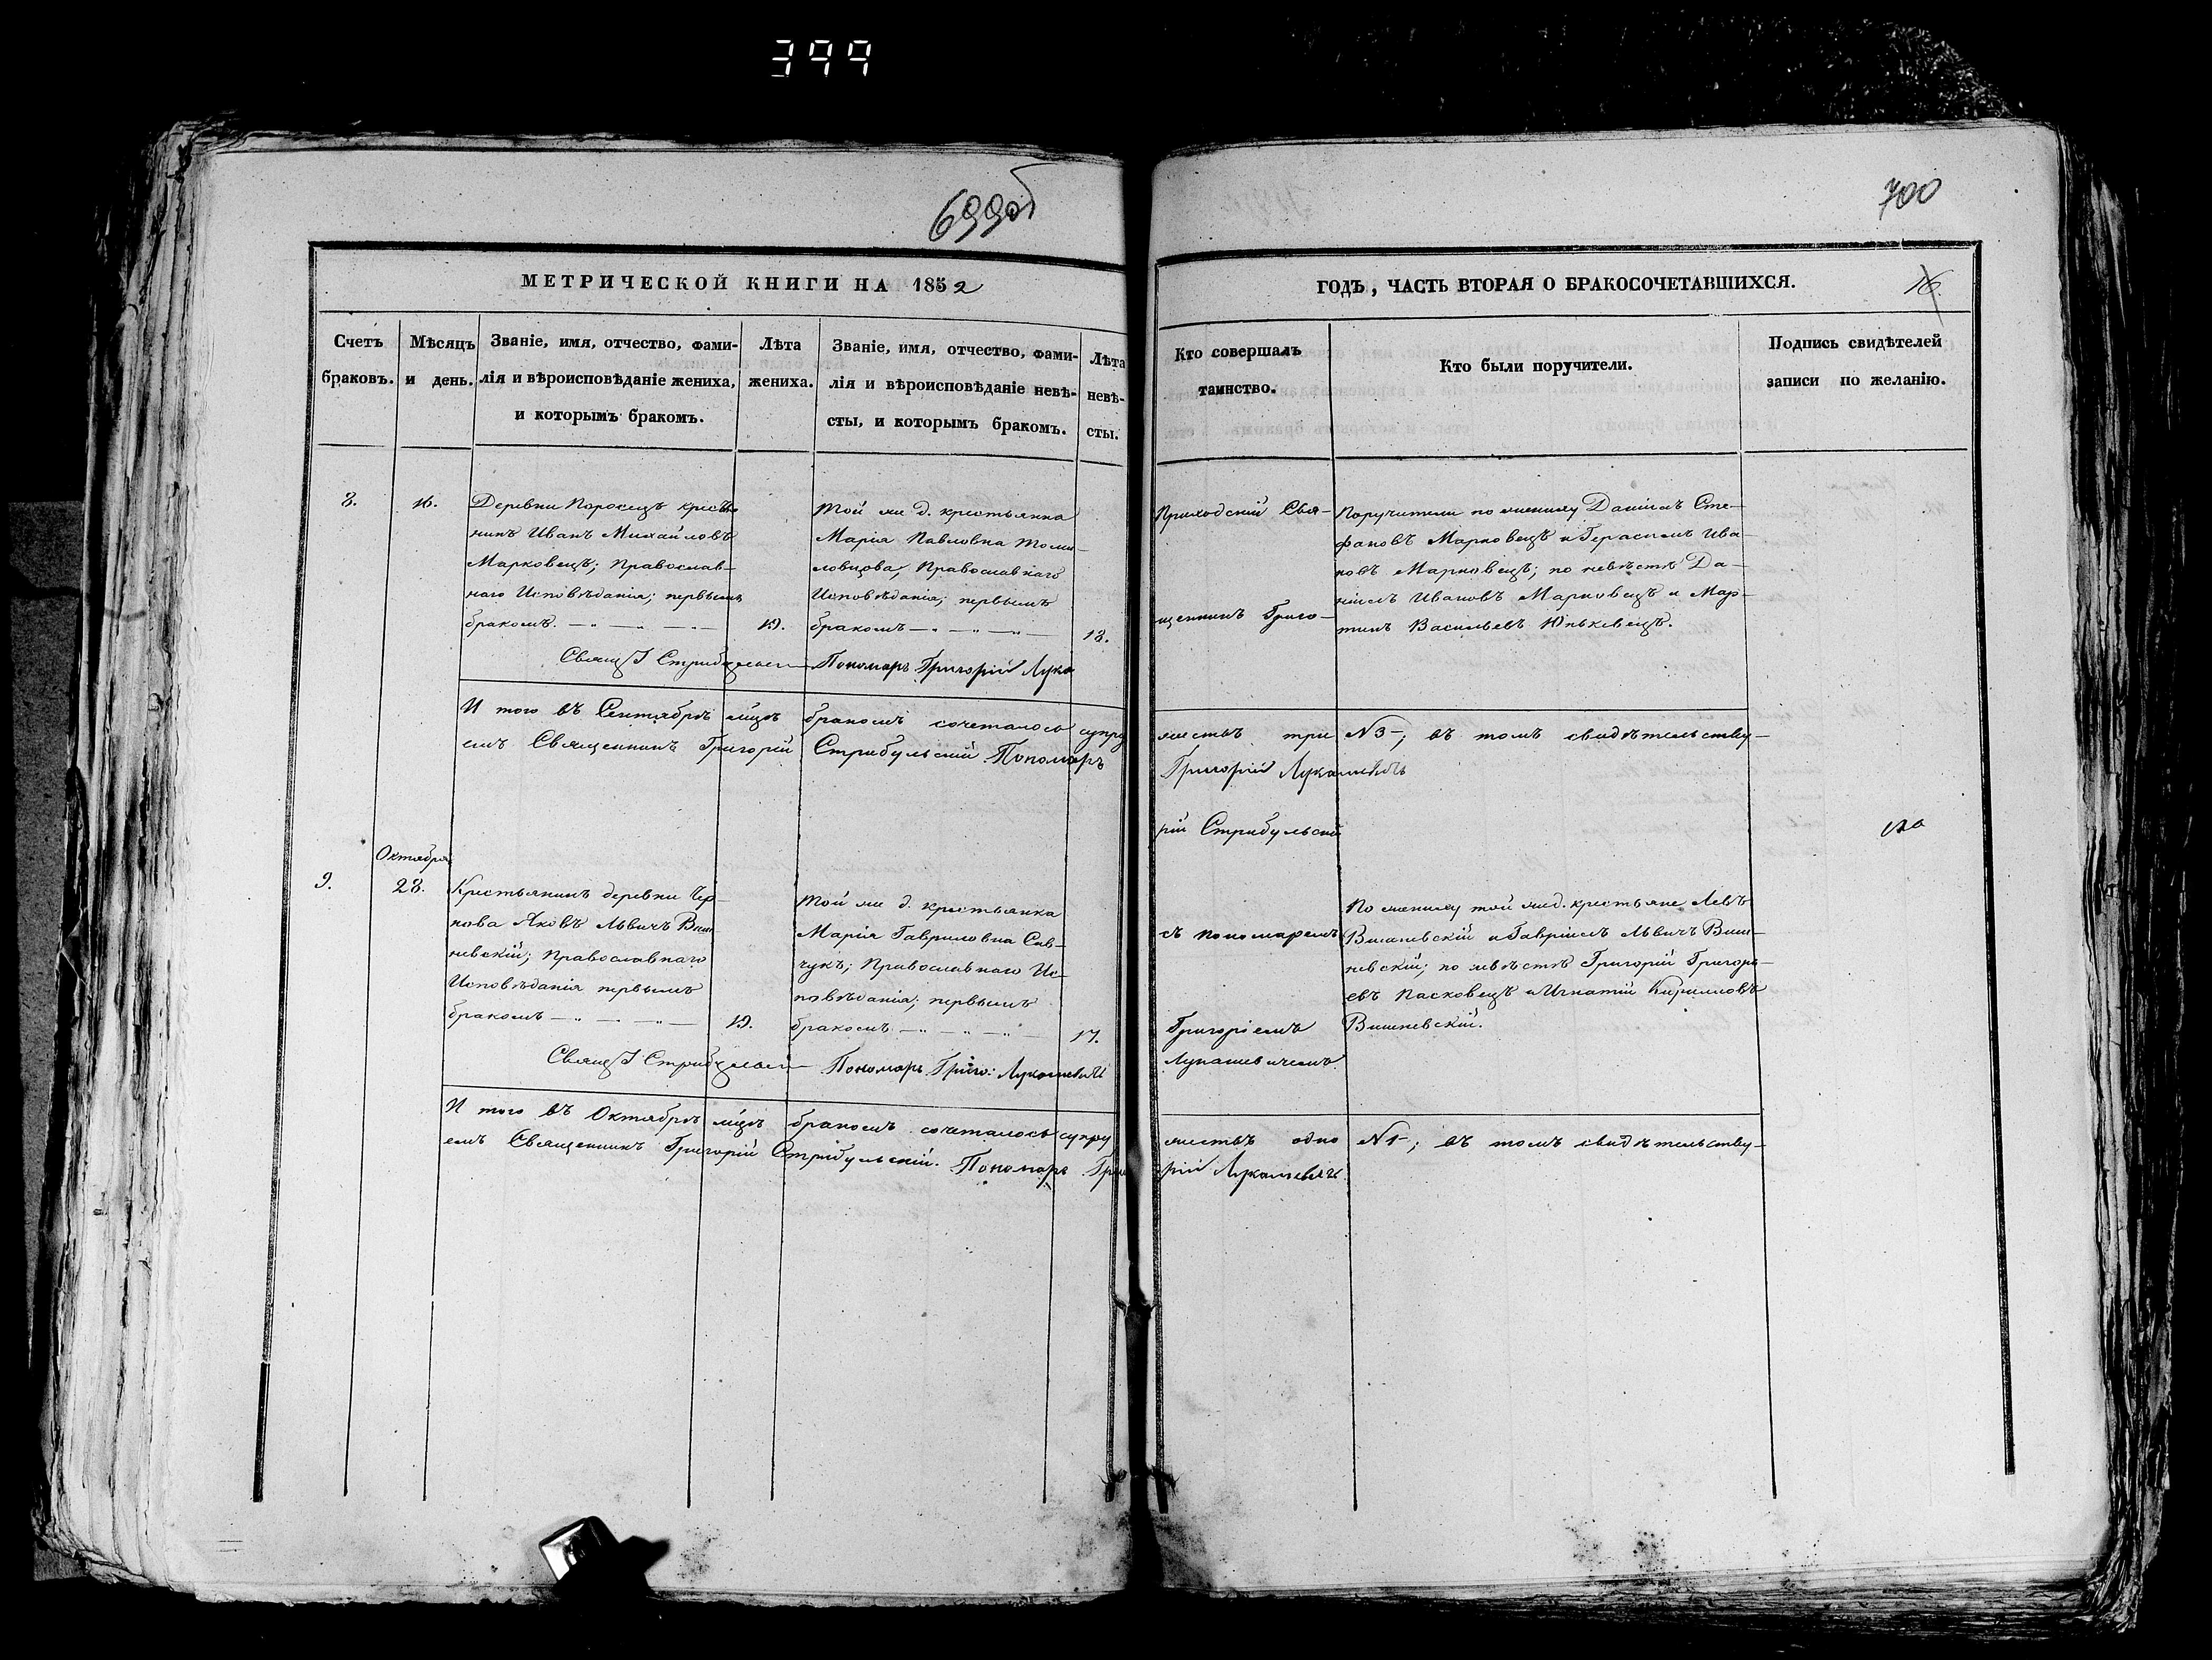 399
699об
700
МЕТРИЧЕСКОЙ КНИГИ НА 1852
ГОДЪ, ЧАСТЬ ВТОРАЯ О БРАКОСОЧЕТАВШИХСЯ.
16
Счетъ
браковъ.
Мѣсяцъ
и день.
Званіе, имя, отчество, фами-
лія и вѣроисповѣданіе жениха,
и которымъ бракомъ.
Лѣта
жениха.
Званіе, имя, отчество, фами-
лія и вѣроисповѣданіе невѣ-
сты, и которымъ бракомъ.
Лѣта
невѣ-
сты.
Кто совершалъ
таинство.
Кто были поручители.
Подпись свидѣтелей
записи по желанію.
8.
16.
Деревни Поросецъ кресть-
нинъ Иванъ Михайловъ
Марковецъ; Православ-
наго Исповѣданія; первымъ
бракомъ.
19.
Той же д. крестьянка
Марія Павловна
Православнаго
Исповѣданія; первымъ
бракомъ
18.
Приходскій Свя-
щенникъ Григо-
Поручители по жениху Даніилъ Сте-
фановъ Марковецъ и Герасимъ Ива-
новъ Марковецъ; по невѣстѣ Да-
ніилъ Ивановъ Марковецъ и Мар-
тинъ Васильевъ Юньковецъ.
Свящ. Г Стрибульскій
Пономарь Григорій Лука
И того въ Сентябрѣ м̃цѣ бракомъ сочеталось супру
жествъ три №3-; въ томъ свидѣтельству-
емъ Священникъ Григорій Стрибульскій. Пономарь
Григорій Лукашевичъ
рій Стрибульскій
Октября
9.
28.
Крестьянинъ деревни Чер-
нова Яковъ Львичъ Виш
невскій; Православнаго
Исповѣданія первымъ
бракомъ
19.
Той же д. крестьянка
Марія Гавриловна Сав-
чукъ; Православнаго Ис-
повѣданія; первымъ
бракомъ
17.
съ пономаремъ
Григоріемъ
Лукашевичемъ.
По жениху той же д. крестьяне Левъ
Вишневскій и Гавріилъ Львичъ Виш-
невскій; по невѣстѣ Григорій Григорь-
евъ Пасковецъ и Игнатій Кирилловъ
Вишневскій.
Свящ. Г Стрибульскій
Пономарь Григо: Лукашевичъ
И того въ Октябрѣ м̃цѣ бракомъ сочеталось супру
жествъ одно №1-; въ томъ свидѣтельству-
емъ Священникъ Григорій Стрибульскій. Пономарь Григо
рій Лукашевичъ